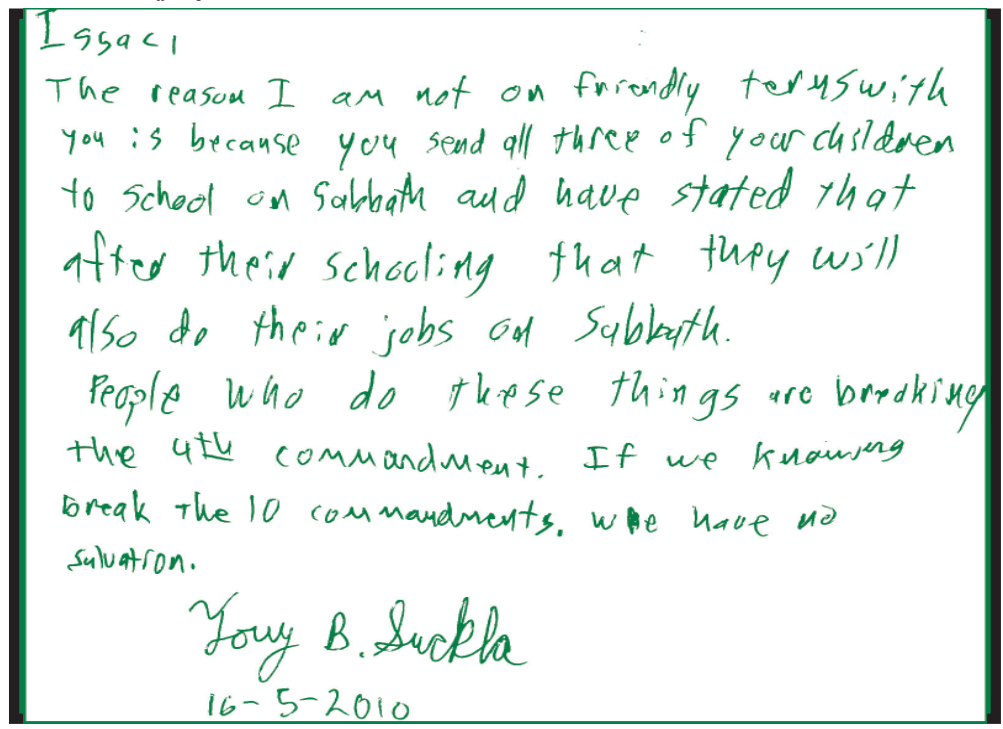 Issac,
The reason I am not on friendly terms with
you is because you send all three of your children
to school on Sabbath and have stated that
after their schooling that they will
also do their jobs on Sabbath.
People who do these things are breaking
the 4th commandment. If we knowing
break the 10 commandments, we have no
salvation.
Tony B. Suckla
16-5-2010